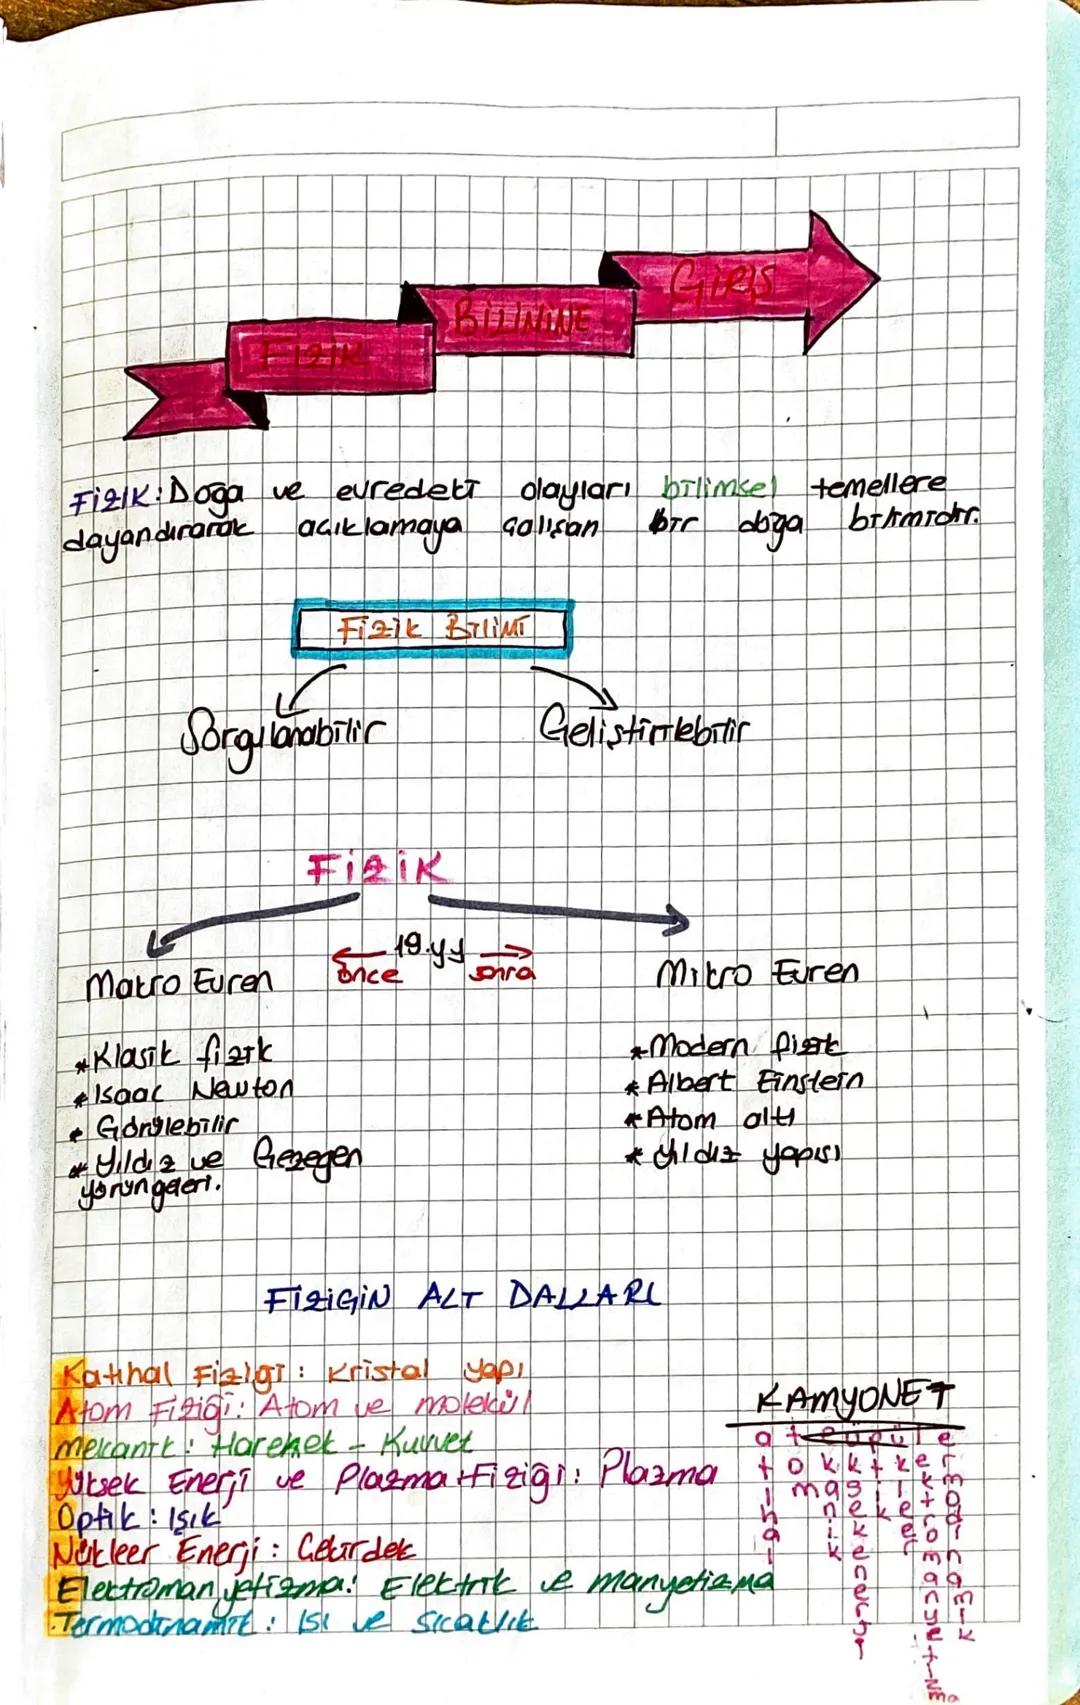 FİZİK
BİLİMİNE
GİRİŞ
FİZİK: Doğa ve evredeki olayları bilimsel temellere
dayandırarak açıklamaya çalışan bir doğa bilimidir.
Fizik Bilimi
Sorgulanabilir
Geliştirilebilir
FİZİK
19.yy
önce
sonra
Makro Evren
Mikro Evren
*Klasik fizik
*Isaac Newton
*Görülebilir
*Yıldız ve Gezegen
yörüngeleri.
*Modern fizik
*Albert Einstein
*Atom altı
*Yıldız yapısı
FİZİGİN ALT DALLARI
Katıhal Fiziği: Kristal yapı
Atom Fiziği: Atom ve molekül
mekanik: Hareket - Kuvvet
Yüksek Enerji ve Plazma Fiziği: Plazma
Optik: Işık
Nükleer Enerji: Çekirdek
Elektromanyetizma: Elektrik ve manyetizma
Termodinamik: Isı ve sıcaklık
KAMYONET
atıhal
tom
ekanik
üksek enerji
ptik
ükleer
lektromanyetizma
ermodinamik